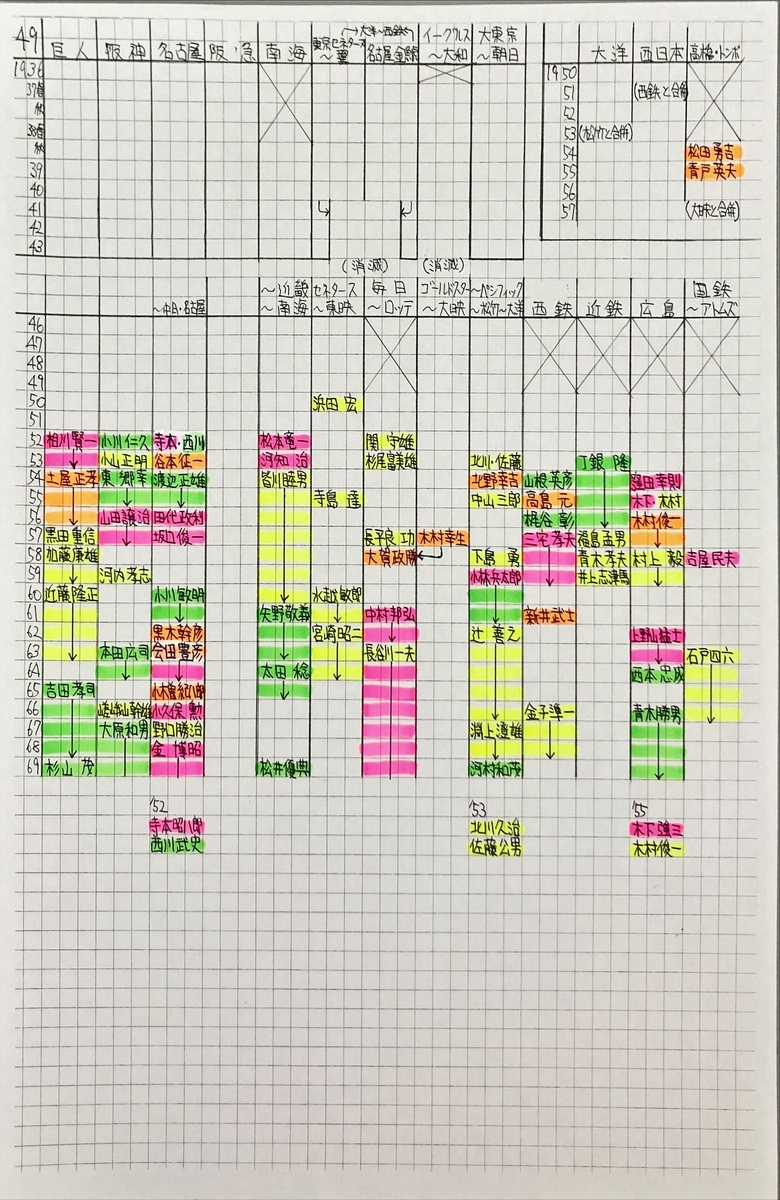 49 巨人 阪神 名古屋 阪急 南海 東京セネタース〜翼 〜大洋〜西鉄 名古屋金鯱 イーグルス〜大和 大東京〜朝日 大洋 西日本 高橋・トンボ
1936 1950
37春 51 (西鉄と合併)
秋 52
38春 53 (松竹と合併)
秋 54 松田勇吉
39 55 青戸英夫
40 56
41 57 (大映と合併)
42
43
(消滅) (消滅)
〜中日・名古屋 〜近畿〜南海 セネタース〜東映 毎日〜ロッテ ゴールドスター〜大映 〜パシフィック〜松竹〜大洋 西鉄 近鉄 広島 国鉄〜アトムズ
46
47
48
49
50 浜田宏
51
52 相川賢一 小川仁久 寺本・西川 松本竜一 関守雄
53 小山正明 谷本征一 河知治 杉尾富美雄 北川・佐藤 丁銀隆
54 土屋正孝 東郷幸 渡辺正雄 皆川睦男 北野幸吉 山根英彦 窪田幸則
55 寺島達 中山三郎 高島元 木下 木村
56 山田譲治 田代政利 梶谷彰 木村俊一
57 黒田重信 坂口俊一 長平良功 木村幸生 三宅孝夫 福島孟男
58 加藤康雄 大賀政勝 下島勇 青木孝夫 村上毅 吉屋民夫
59 河内孝志 小林兵太郎 井上志津馬
60 近藤隆正 小川敏明 水越敏郎
61 矢野敬義 中村邦弘 新井武士
62 黒木幹彦 宮崎昭二 辻善之 上野山猛士
63 本田広司 会田豊彦 長谷川一夫 石戸四六
64 太田稔 西本忠成
65 吉田孝司 小木曽紀八郎
66 嵯峨山幹雄 小久保勲 金子準一 青木勝男
67 大原和男 野口勝治 淵上澄雄
68 金博昭
69 杉山茂 松井優典 河村和茂
'52 '53 '55
寺本昭八郎 北川久治 木下強三
西川武史 佐藤公男 木村俊一